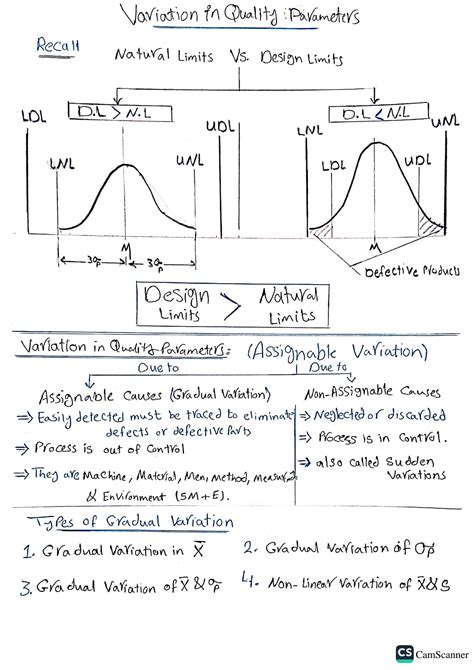 Variation in Quality: Parameters
Recall
Natural Limits Vs. Design Limits
D.L > N.L
D.L < N.L
LDL
UDL
LNL
UNL
LNL
UNL
LDL
UDL
M
M
3σp
3σp
Defective Products
Design Limits > Natural Limits
Variation in Quality Parameters: (Assignable Variation)
Due to
Due to
Assignable Causes (Gradual Variation)
⇒ Easily detected must be traced to eliminate
defects or defective Parts
⇒ Process is out of Control
⇒ They are Machine, Material, Men, Method,
& Environment (5M+E).
Non-Assignable Causes
⇒ Neglected or discarded
⇒ Process is in Control.
⇒ also called Sudden
Variations
Types of Gradual Variation
1. Gradual Variation in X̄
2. Gradual Variation of σp
3. Gradual Variation of X̄ & σp
4. Non-Linear Variation of X̄ & S
CS CamScanner